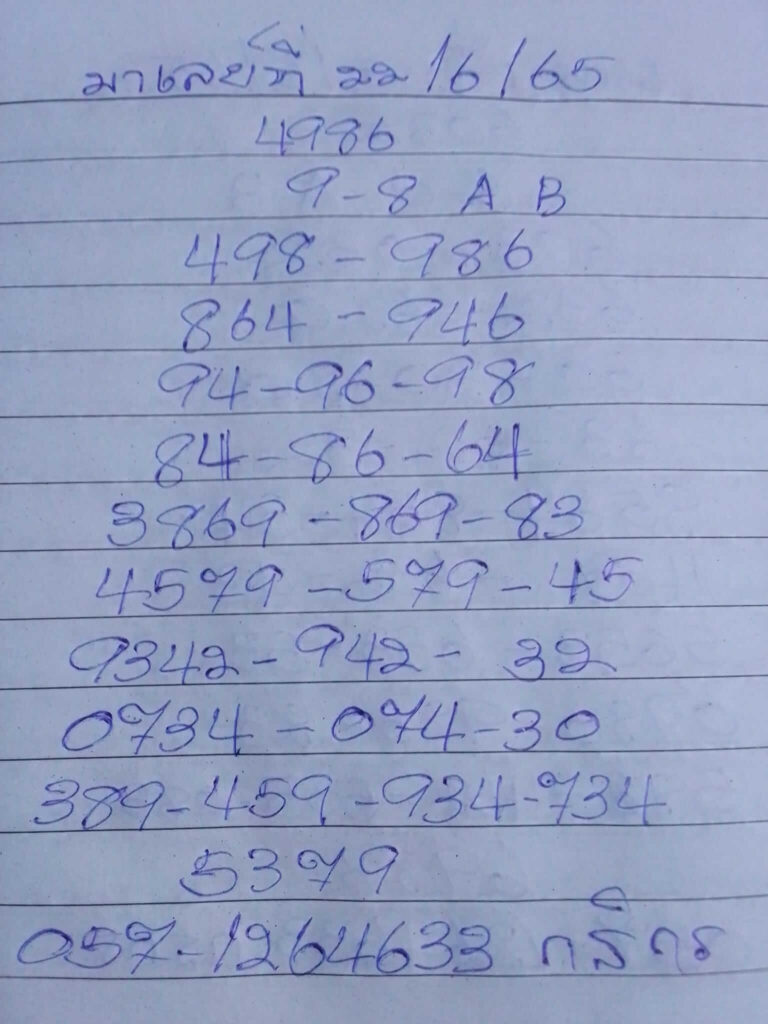 มาเลย์ที่ 22/6/65
4986
9-8 A B
498 - 986
864 - 946
94-96-98
84-86-64
3869 - 869 - 83
4579 - 579 - 45
9342 - 942 - 32
0734 - 074 - 30
389-459-934-734
5379
057-1264633 กสิกร